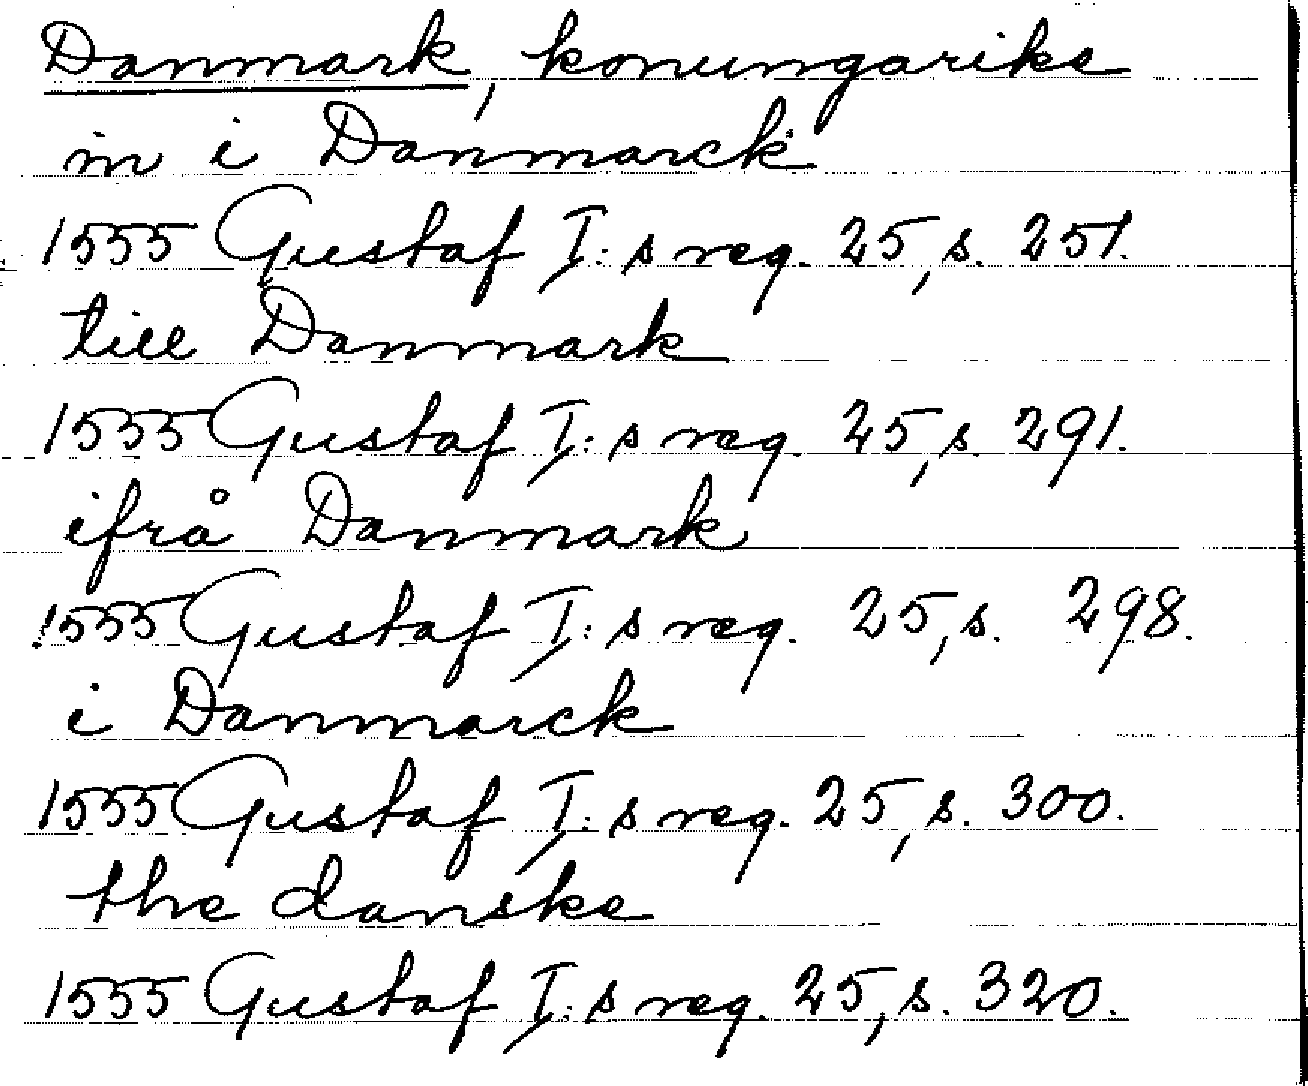 Danmark, konungarike
in i Danmarck
1555 Gustaf I:s reg. 25, s. 251.
till Danmark
1555 Gustaf I:s reg. 25, s. 291.
ifrå Danmark
1555 Gustaf I:s reg. 25, s. 298.
i Danmarck
1555 Gustaf I:s reg. 25, s. 300.
the danske
1555 Gustaf I:s reg. 25, s. 320.